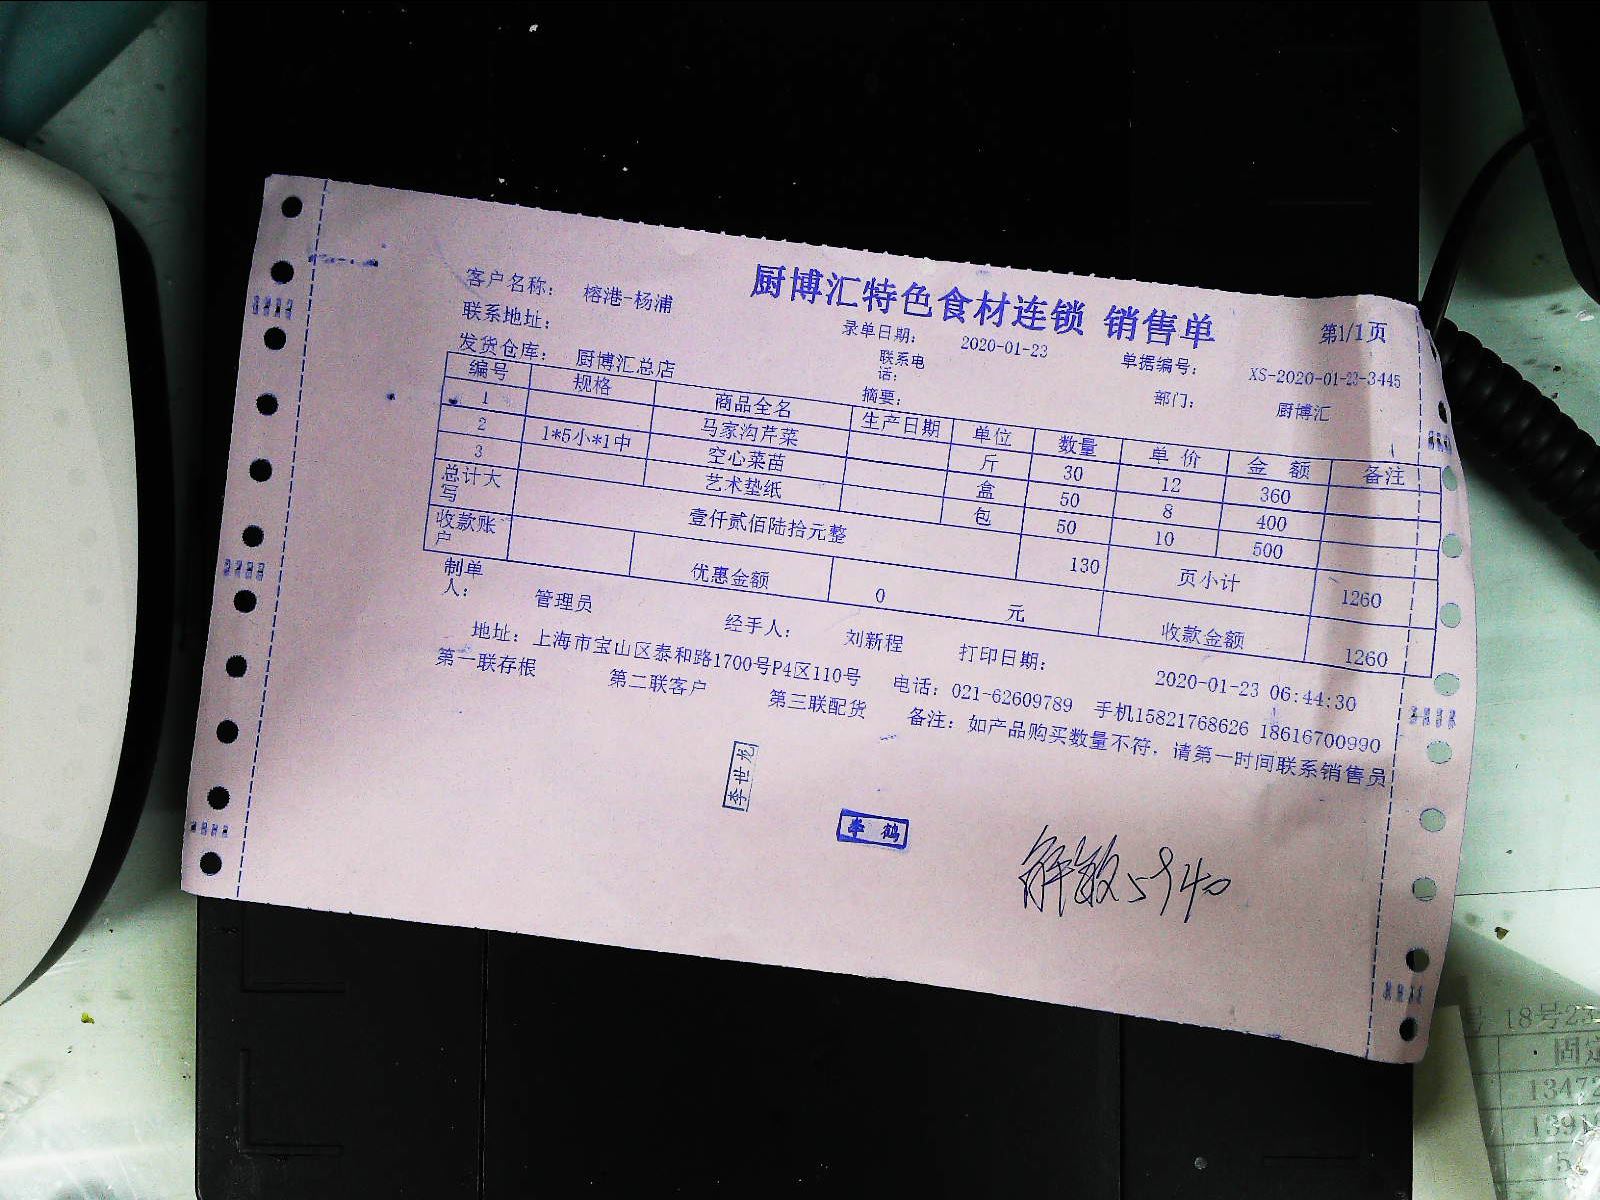 厨博汇特色食材连锁 销售单
第1/1页
客户名称： 榕港-杨浦
录单日期： 2020-01-23
单据编号： XS-2020-01-23-3445
联系地址：
联系电话：
部门： 厨博汇
发货仓库： 厨博汇总店
摘要：
编号 规格 商品全名 生产日期 单位 数量 单价 金额 备注
1 马家沟芹菜 斤 30 12 360
2 1*5小*1中 空心菜苗 盒 50 8 400
3 艺术垫纸 包 50 10 500
总计大写 壹仟贰佰陆拾元整 130 页小计 1260
收款账户 优惠金额 0 元 收款金额 1260
制单人： 管理员 经手人： 刘新程 打印日期： 2020-01-23 06:44:30
地址：上海市宝山区泰和路1700号P4区110号 电话：021-62609789 手机15821768626 18616700990
第一联存根 第二联客户 第三联配货 备注：如产品购买数量不符，请第一时间联系销售员
李世龙
18号23
固
13472
1391
5